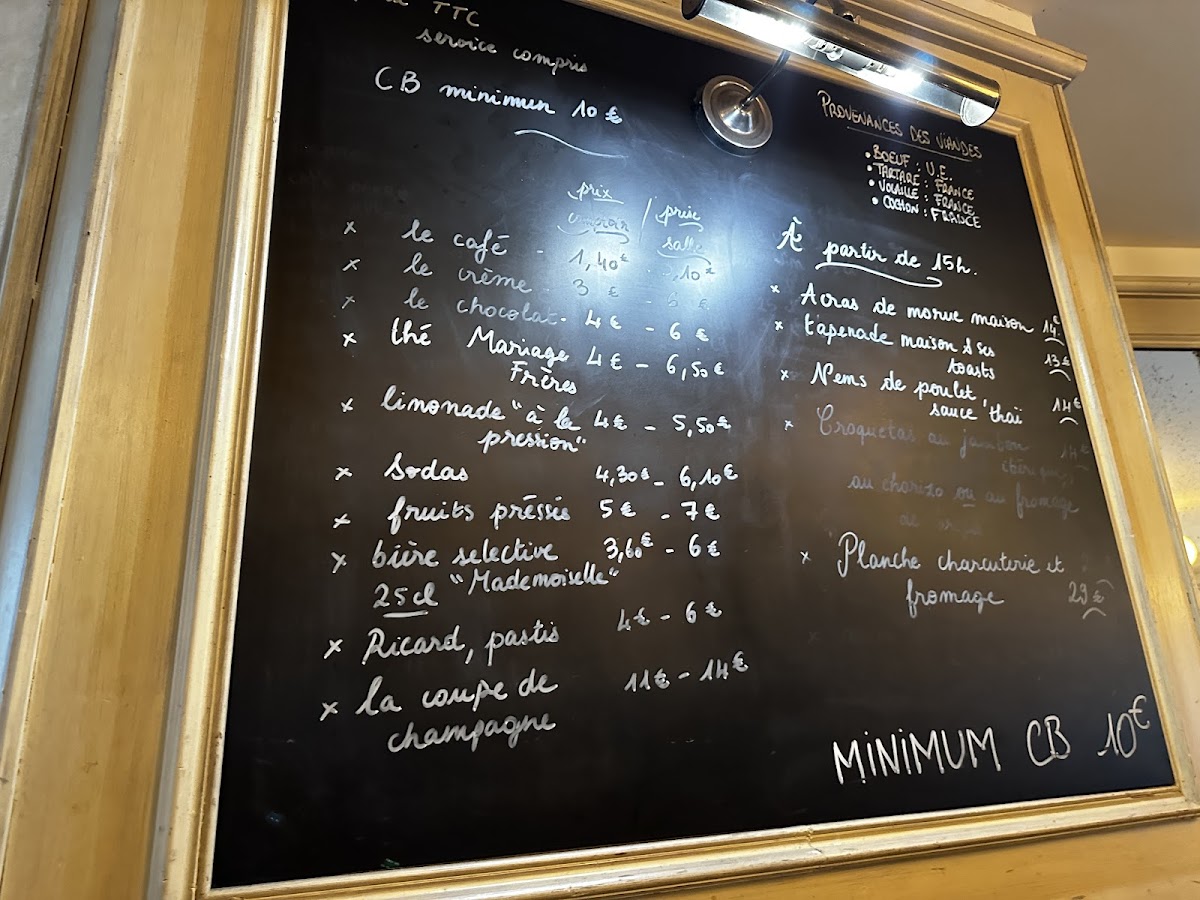 TTC
service compris
CB minimum 10 €
prix prix
comptoir / salle
× le café - 1,40€ - ,10€
× le crème - 3 € -
× le chocolat - 4€ - 6 €
× thé Mariage 4€ - 6,50€
Frères
× limonade "à la 4€ - 5,50€
pression"
× Sodas 4,30€ - 6,10€
× fruits préssés 5€ - 7€
× bière selective 3,60€ - 6€
25cl "Mademoiselle"
× Ricard, pastis 4€ - 6€
× la coupe de 11€ - 14€
champagne
PROVENANCES DES VIANDES
• BOEUF : U.E.
• TARTARE : FRANCE
• VOLAILLE : FRANCE
• COCHON : FRANCE
À partir de 15h.
× Acras de morue maison 14€
× tapenade maison & ses
toasts 13€
× Nems de poulet,
sauce thaï 14€
× Croquetas au jambon 14€
ibérique,
au chorizo ou au fromage
× Planche charcuterie et
fromage 29€
MINIMUM CB 10€